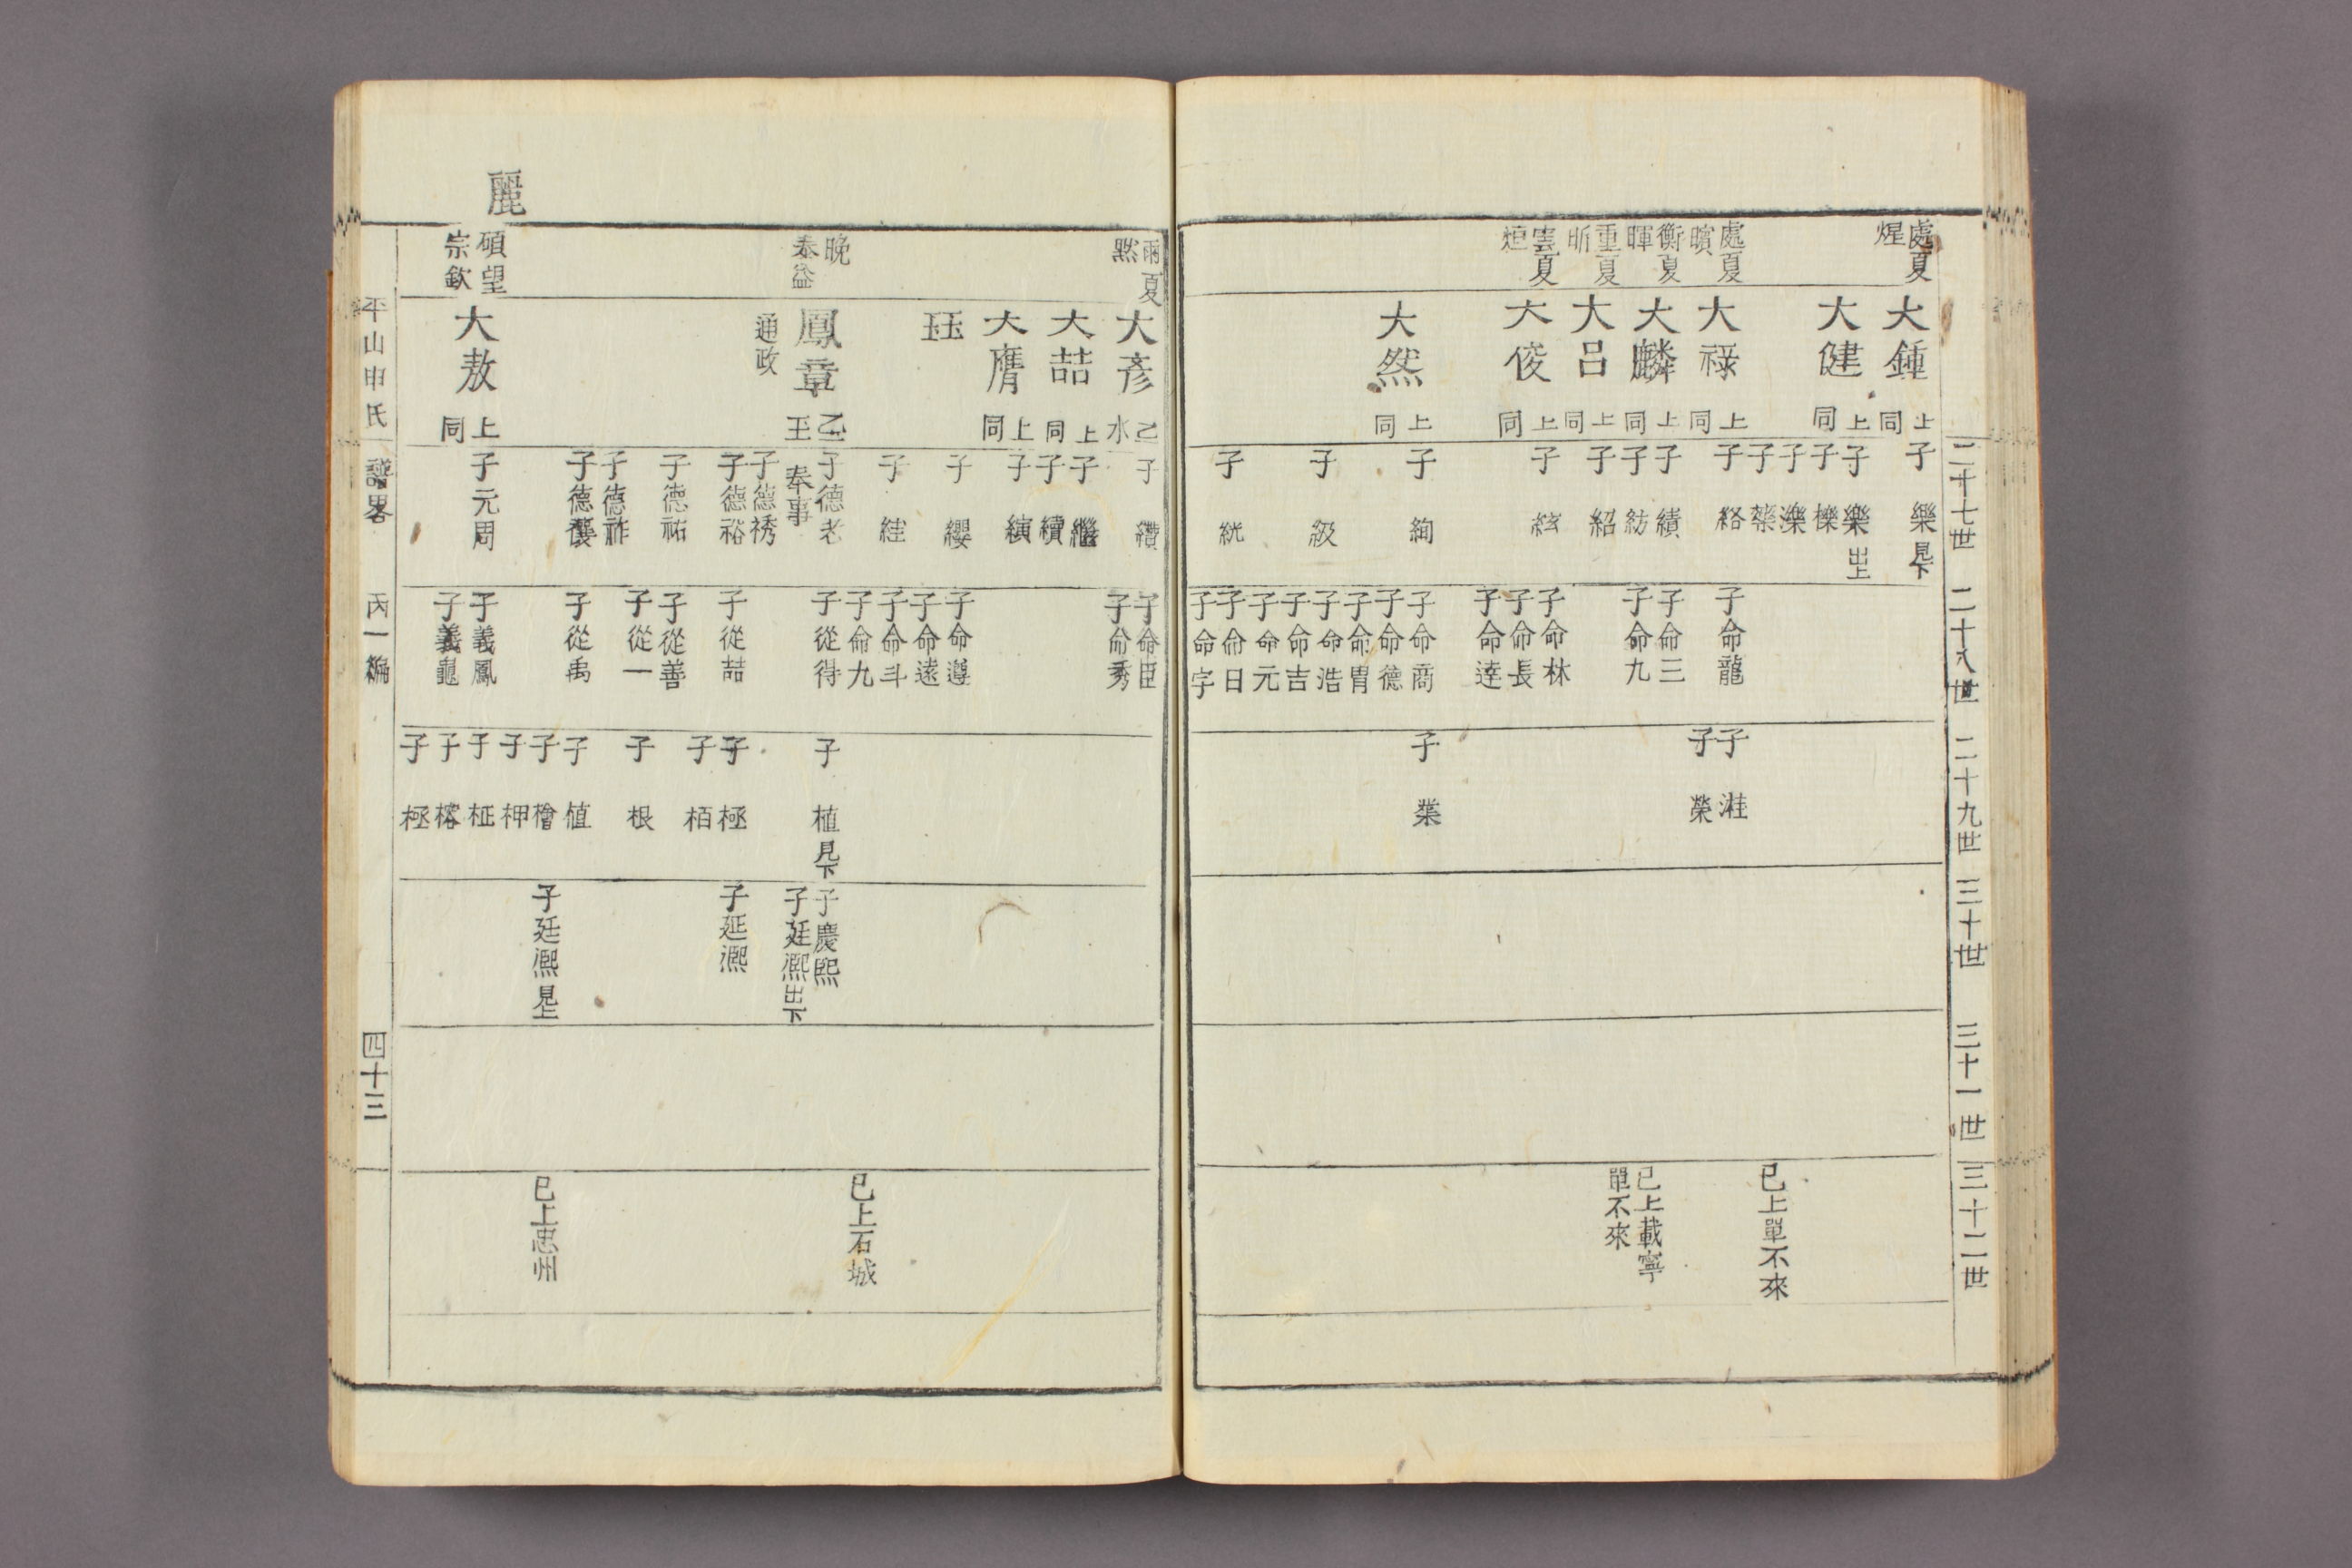 二十七世
二十八世
二十九世
三十世
三十一世
三十二世
處夏
煋
處夏
衡夏
暉
重夏
昕
雲夏
烜
大鍾
上
同
大健
上
同
大祿
上
同
大麟
上
同
大呂
上
同
大俊
上
同
大然
上
同
子 樂 見下
子 樂 出上
子 櫟
子 濼
子
子 絡
子 績
子 紡
子 紹
子 絃
子 絢
子 級
子 統
子命龍
子命三
子命九
子命林
子命長
子命達
子命商
子命德
子命胄
子命浩
子命吉
子命元
子命日
子命字
子 溎
子 榮
子 業
已上單不來
已上載寧
單不來
爾夏
黙
晚
泰益
碩望
宗欽
麗
大彥
乙
水
大喆
上
同
大膺
上
同
珏
鳳章
乙
王
通政
大敖
上
同
子 纘
子 繼
子 續
子 縯
子 纓
子 絓
子德老
奉事
子德秀
子德裕
子德祐
子德祚
子德襲
子元周
子命臣
子命秀
子命遵
子命遠
子命斗
子命九
子從待
子從喆
子從善
子從一
子從禹
子義鳳
子義龜
子 植 見下
子 極
子 栢
子 根
子 植
子 檜
子 柙
子 柾
子 榕
子 極
子慶熙
子廷凞出下
子延凞
子廷凞見上
已上石城
已上忠州
平山申氏
譜畧
丙一編
四十三